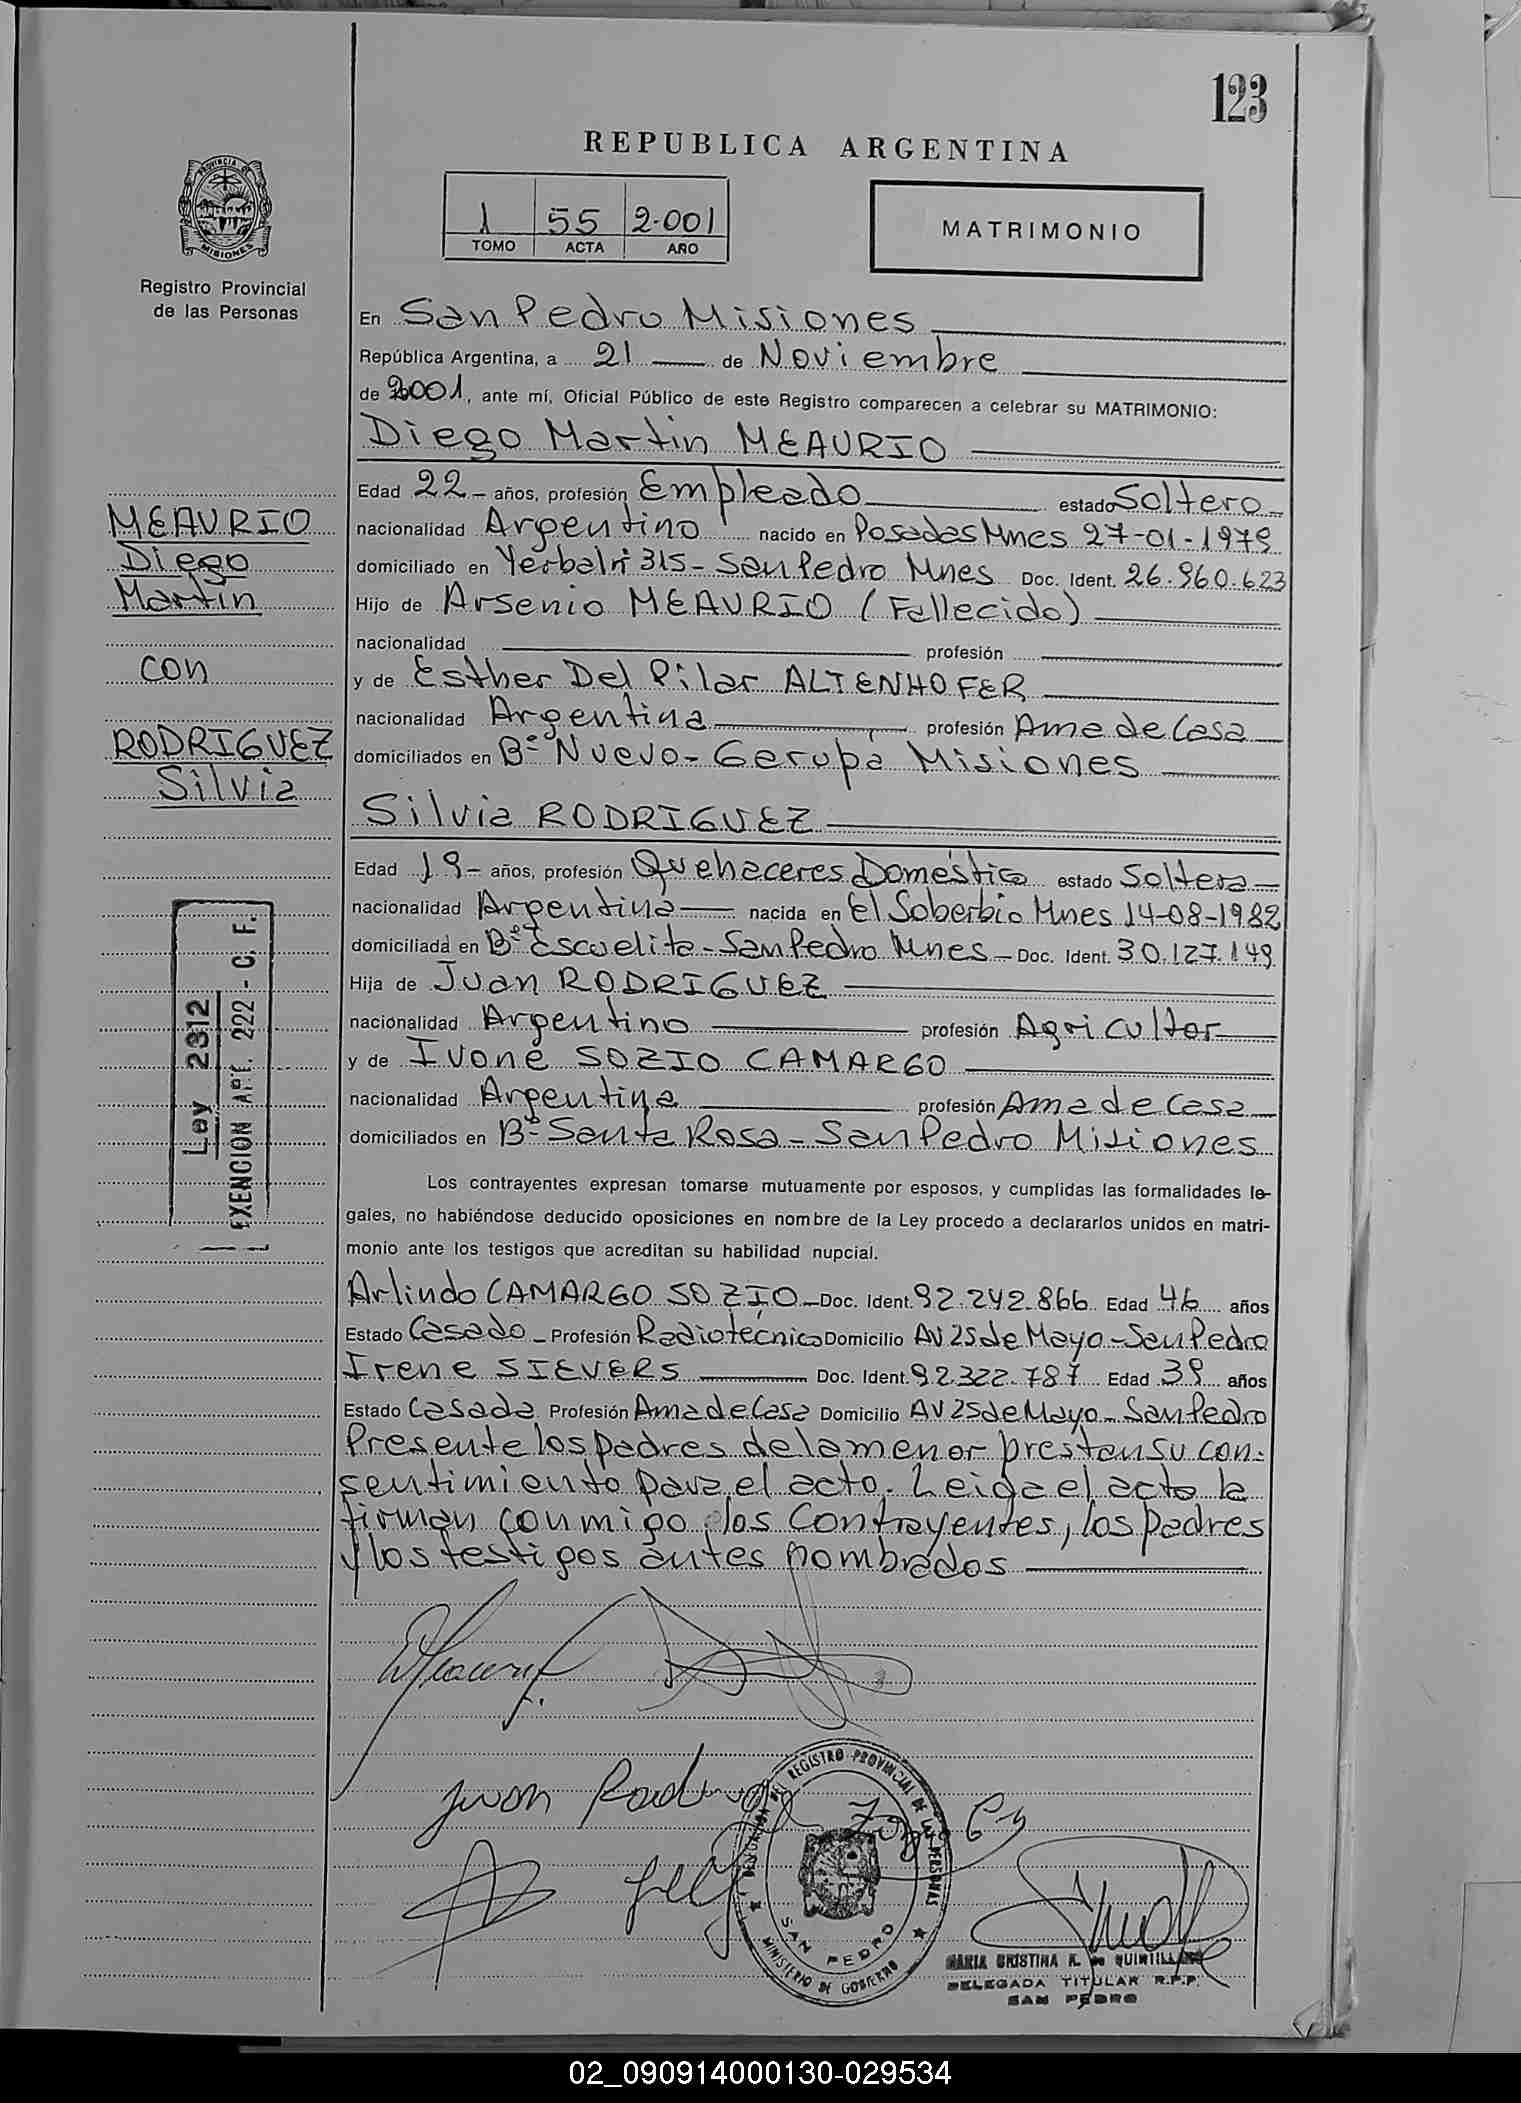 123
REPUBLICA ARGENTINA
1 55 2.001
TOMO ACTA AÑO
MATRIMONIO
PROVINCIA DE MISIONES
Registro Provincial
de las Personas
En San Pedro Misiones
República Argentina, a 21 de Noviembre
de 2001, ante mí, Oficial Público de este Registro comparecen a celebrar su MATRIMONIO:
Diego Martin MEAURIO
Edad 22 años, profesión Empleado estado Soltero
nacionalidad Argentino nacido en Posadas Mnes 27-01-1979
domiciliado en 315- San Pedro Mnes Doc. Ident. 26.960.623
Hijo de Arsenio MEAURIO (Fallecido)
nacionalidad profesión
y de Esther Del Pilar ALTENHOFER
nacionalidad Argentina profesión Ama de Casa
domiciliados en Bº Nuevo- Gerupá Misiones
Silvia RODRIGUEZ
Edad 19- años, profesión Quehaceres Doméstico estado Soltera
nacionalidad Argentina nacida en El Soberbio Mnes 14-08-1982
domiciliada en Bº Escuelita-San Pedro Mnes- Doc. Ident. 30.127.149
Hija de Juan RODRIGUEZ
nacionalidad Argentino profesión Agricultor
y de Ivone SOZIO CAMARGO
nacionalidad Argentina profesión Ama de Casa
domiciliados en Bº Santa Rosa- San Pedro Misiones
Los contrayentes expresan tomarse mutuamente por esposos, y cumplidas las formalidades le-
gales, no habiéndose deducido oposiciones en nombre de la Ley procedo a declararlos unidos en matri-
monio ante los testigos que acreditan su habilidad nupcial.
Arlindo CAMARGO SOZIO- Doc. Ident. 92.242.866 Edad 46 años
Estado Casado- Profesión Radiotécnico Domicilio AV 25 de Mayo-San Pedro
Irene SIEVERS Doc. Ident. 92.322.787 Edad 39 años
Estado Casada Profesión Ama de Casa Domicilio AV 25 de Mayo- San Pedro
Presente los padres de la menor prestan su con-
sentimiento para el acto. Leida el acto la
firman conmigo, los Contrayentes, los padres
y los testigos antes nombrados
MEAURIO
Diego
Martin
con
RODRIGUEZ
Silvia
Ley 2312
EXENCION ART. 222 - C. F.
Juan
DELEGACION DEL REGISTRO PROVINCIAL DE LAS PERSONAS
SAN PEDRO
MINISTERIO DE GOBIERNO
MARIA CRISTINA K. de QUINTILLAN
DELEGADA TITULAR R.P.P.
SAN PEDRO
02_090914000130-029534